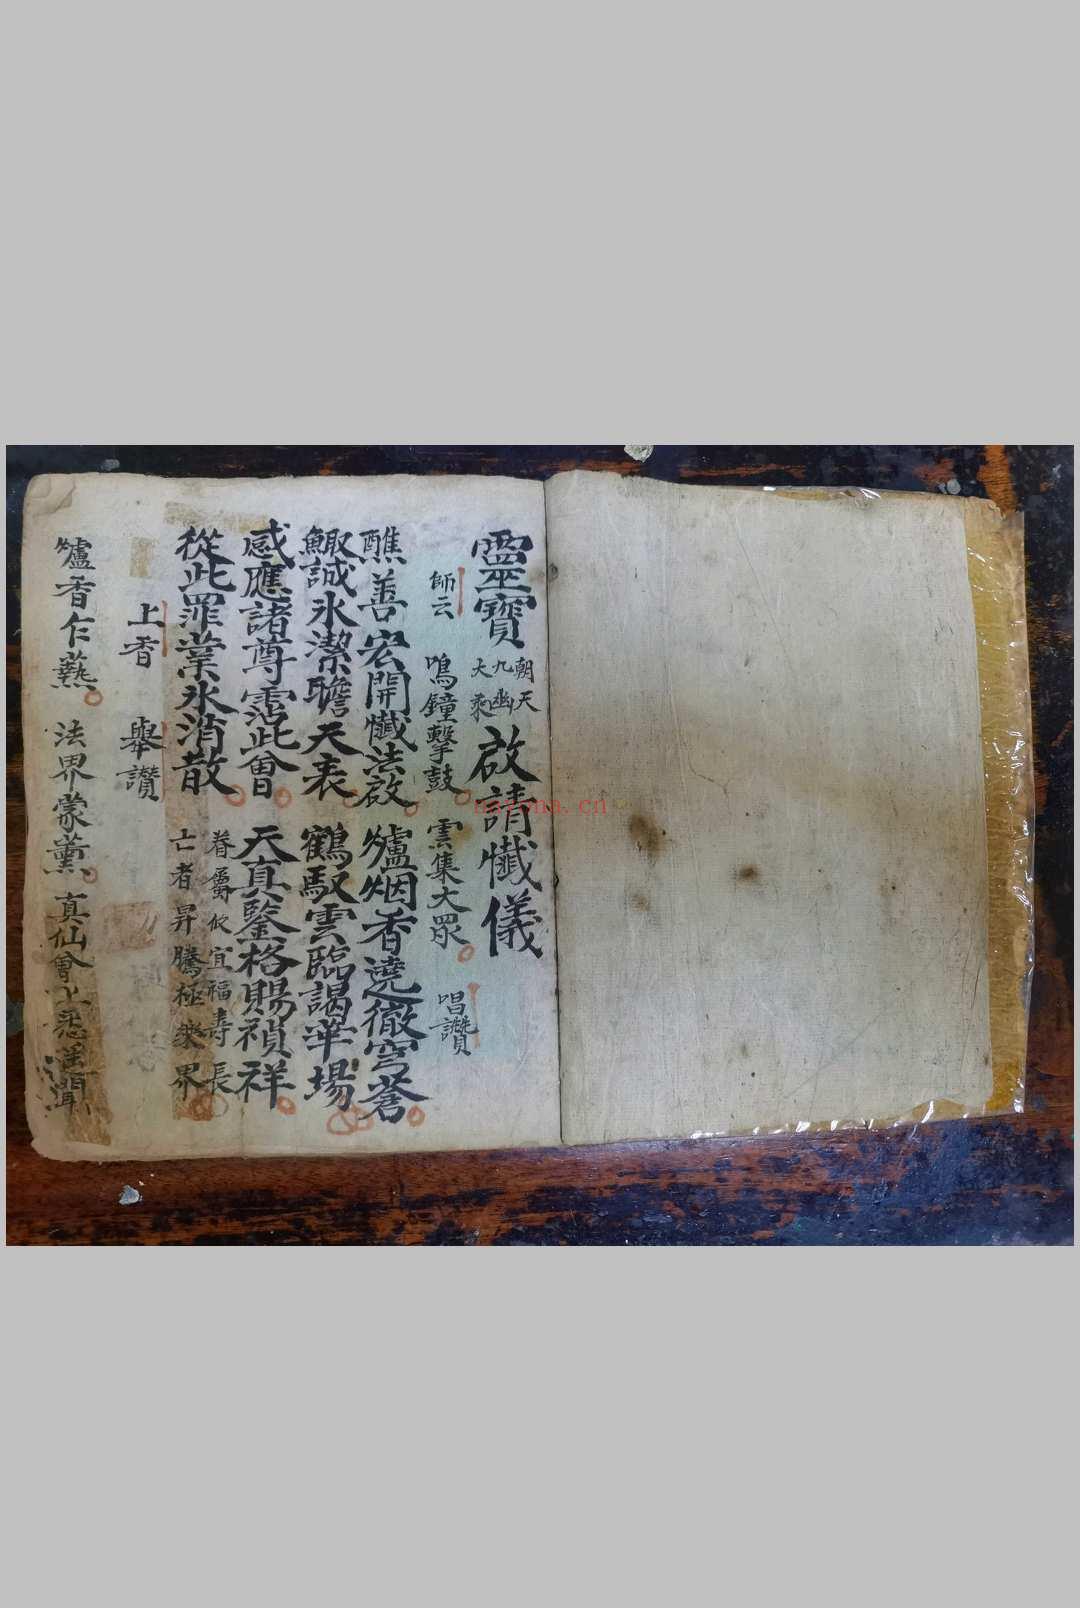 靈寳朝天九幽大乘啟請懺儀
師云 鳴鐘擊鼓 雲集大眾 唱讚
醮善宏開懺法啟 爐烟香遶徹穹蒼
誠氷潔瞻天表 鶴馭雲臨謁華場
感應諸尊霑此會 天真鑒格賜禎祥
從此罪業氷消散 眷屬攸宜福壽長
亡者昇騰極樂界
上香 舉讚
爐香乍爇 法界蒙薰 真仙會上悉遙聞
nayona.cn